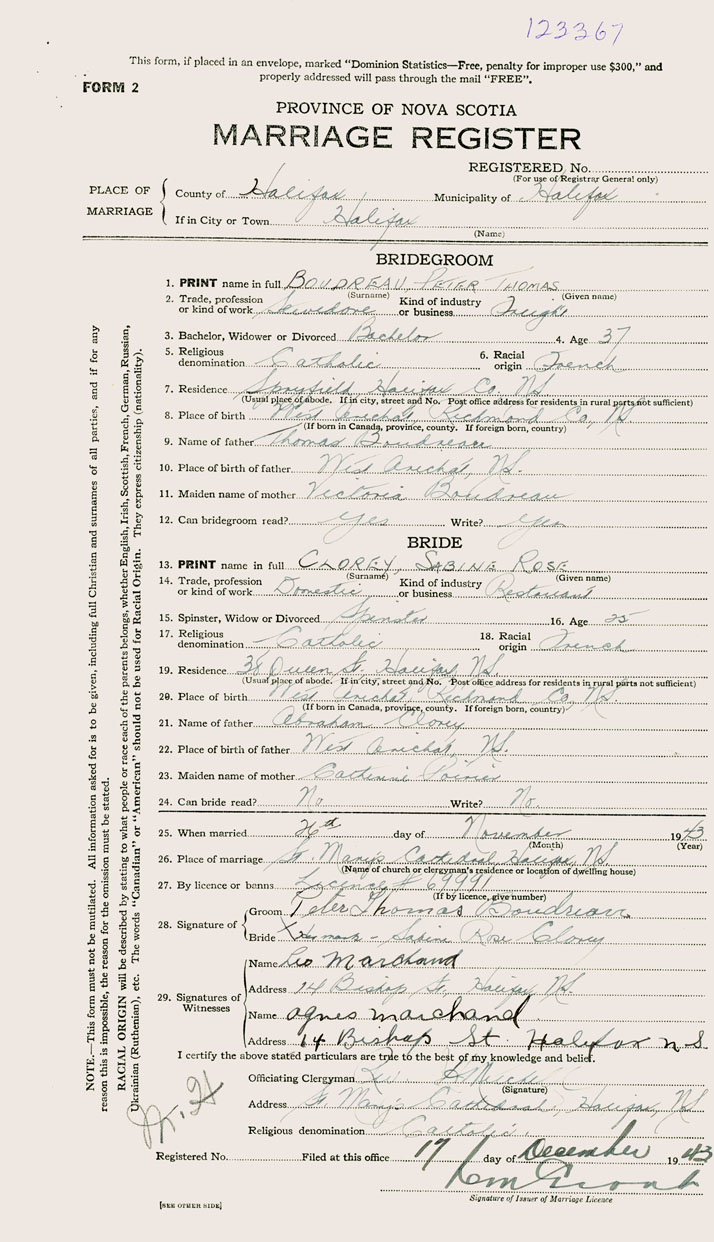 123367
This form, if placed in an envelope, marked “Dominion Statistics—Free, penalty for improper use $300,” and
properly addressed will pass through the mail “FREE”.
FORM 2
PROVINCE OF NOVA SCOTIA
MARRIAGE REGISTER
REGISTERED No.
(For use of Registrar General only)
PLACE OF MARRIAGE
County of Halifax Municipality of Halifax
If in City or Town Halifax
(Name)
BRIDEGROOM
1. PRINT name in full BOUDREAU, PETER THOMAS
(Surname) (Given name)
2. Trade, profession or kind of work Stevedore Kind of industry or business Freight
3. Bachelor, Widower or Divorced Bachelor 4. Age 37
5. Religious denomination Catholic 6. Racial origin French
7. Residence Spryfield, Halifax Co. N.S.
(Usual place of abode. If in city, street and No. Post office address for residents in rural parts not sufficient)
8. Place of birth West Arichat, Richmond Co, N.S.
(If born in Canada, province, county. If foreign born, country)
9. Name of father Thomas Boudreau
10. Place of birth of father West Arichat, N.S.
11. Maiden name of mother Victoria Boudreau
12. Can bridegroom read? Yes Write? Yes
BRIDE
13. PRINT name in full CLOREY, SABINE ROSE
(Surname) (Given name)
14. Trade, profession or kind of work Domestic Kind of industry or business Restaurant
15. Spinster, Widow or Divorced Spinster 16. Age 25
17. Religious denomination Catholic 18. Racial origin French
19. Residence 38 Queen St. Halifax, N.S.
(Usual place of abode. If in city, street and No. Post office address for residents in rural parts not sufficient)
20. Place of birth West Arichat, Richmond Co, N.S.
(If born in Canada, province, county. If foreign born, country)
21. Name of father Abraham Clorey
22. Place of birth of father West Arichat, N.S.
23. Maiden name of mother Catherine Poirier
24. Can bride read? No Write? No
25. When married 2nd day of November 1943
(Month) (Year)
26. Place of marriage St. Mary's Cathedral, Halifax, N.S.
(Name of church or clergyman's residence or location of dwelling house)
27. By licence or banns Licence # 69991
(If by licence, give number)
28. Signature of
Groom Peter Thomas Boudreau
Bride X her mark - Sabine Rose Clorey
29. Signatures of Witnesses
Name Leo Marchand
Address 14 Bishop St, Halifax, N.S.
Name agnes marchand
Address 14 Bishop St Halifax n S
I certify the above stated particulars are true to the best of my knowledge and belief.
Officiating Clergyman Rev.
(Signature)
Address St. Mary's Cathedral, Halifax, N.S.
Religious denomination Catholic
Registered No. Filed at this office 17 day of December 1943
Signature of Issuer of Marriage Licence
[SEE OTHER SIDE]
NOTE.—This form must not be mutilated. All information asked for is to be given, including full Christian and surnames of all parties, and if for any
reason this is impossible, the reason for the omission must be stated.
RACIAL ORIGIN will be described by stating to what people or race each of the parents belongs, whether English, Irish, Scottish, French, German, Russian,
Ukrainian (Ruthenian), etc. The words “Canadian” or “American” should not be used for Racial Origin. They express citizenship (nationality).